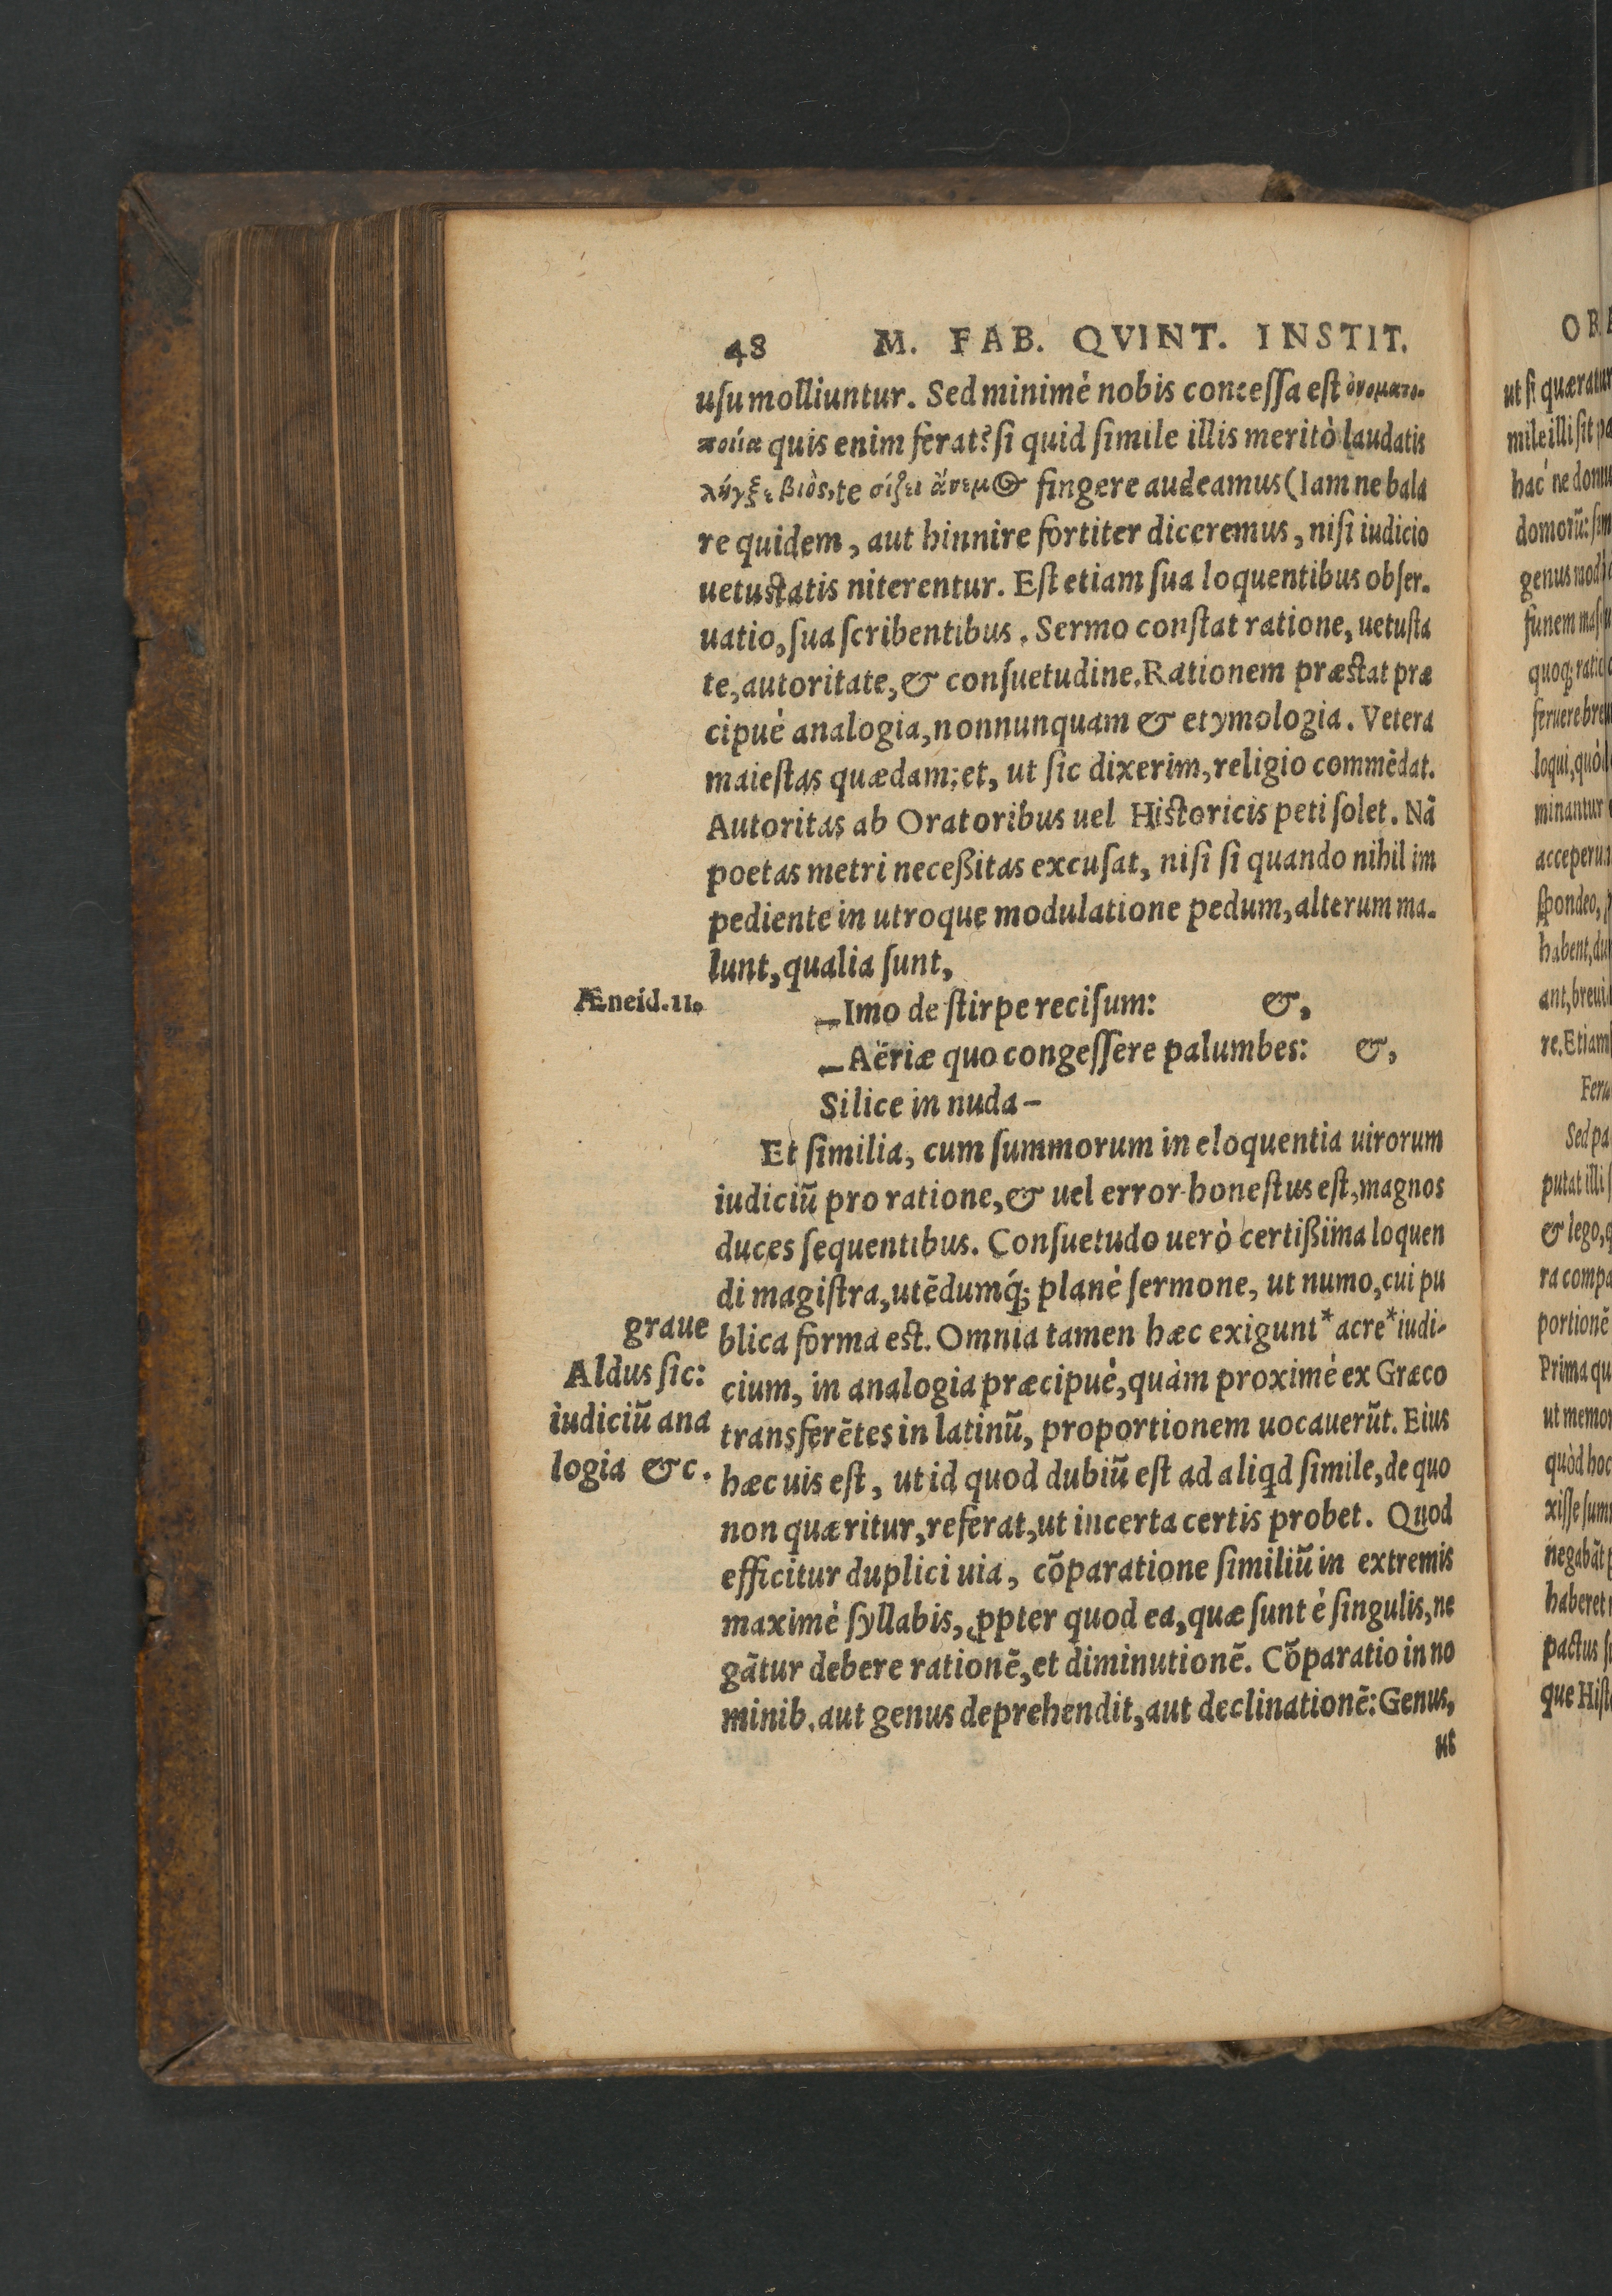 48 M. FAB. QVINT. INSTIT.
uſu molliuntur. Sed minimè nobis conceſſa eſt ὀνοματο-
ποιία quis enim ferat? ſi quid ſimile illis meritò laudatis
λίγξε βιὸς, te σίζει ἄνεμ fingere audeamus (Iam ne bala
re quidem, aut hinnire fortiter diceremus, niſi iudicio
uetuſtatis niterentur. Eſt etiam ſua loquentibus obſer-
uatio, ſua ſcribentibus. Sermo conſtat ratione, uetuſta
te, autoritate, & conſuetudine. Rationem præſtat præ
cipuè analogia, nonnunquam & etymologia. Vetera
maieſtas quædam; et, ut ſic dixerim, religio commēdat.
Autoritas ab Oratoribus uel Hiſtoricis peti ſolet. Nā
poetas metri neceßitas excuſat, niſi ſi quando nihil im
pediente in utroque modulatione pedum, alterum ma-
lunt, qualia ſunt,
Æneid.11.
—Imo de ſtirpe reciſum: &,
—Aëriæ quo congeſſere palumbes: &,
Silice in nuda—
Et ſimilia, cum ſummorum in eloquentia uirorum
iudiciū pro ratione, & uel error honeſtus eſt, magnos
duces ſequentibus. Conſuetudo uerò certißima loquen
di magiſtra, utēdumq́; planè ſermone, ut numo, cui pu
blica forma eſt. Omnia tamen hæc exigunt * acre * iudi-
cium, in analogia præcipuè, quàm proximè ex Græco
transferētes in latinū, proportionem uocauerūt. Eius
hæc uis eſt, ut id quod dubiū eſt ad aliqd ſimile, de quo
non quæritur, referat, ut incerta certis probet. Quod
efficitur duplici uia, cōparatione ſimiliū in extremis
maximè ſyllabis, ꝓpter quod ea, quæ ſunt è ſingulis, ne
gātur debere rationē, et diminutionē. Cōparatio in no
minib. aut genus deprehendit, aut declinationē: Genus,
ut
graue
Aldus ſic:
iudiciū ana
logia &c.
ut ſi quæratur
hac ne domu
genus mod
quoq; ratio
loqui, quòd
minantur
ſpondeo,
re. Etiam
putat illi
& lego, q
ra compa
portionē
Prima qu
ut memor
quòd hoc
xiſſe ſum
negabāt
haberet
pactus
que Hiſt